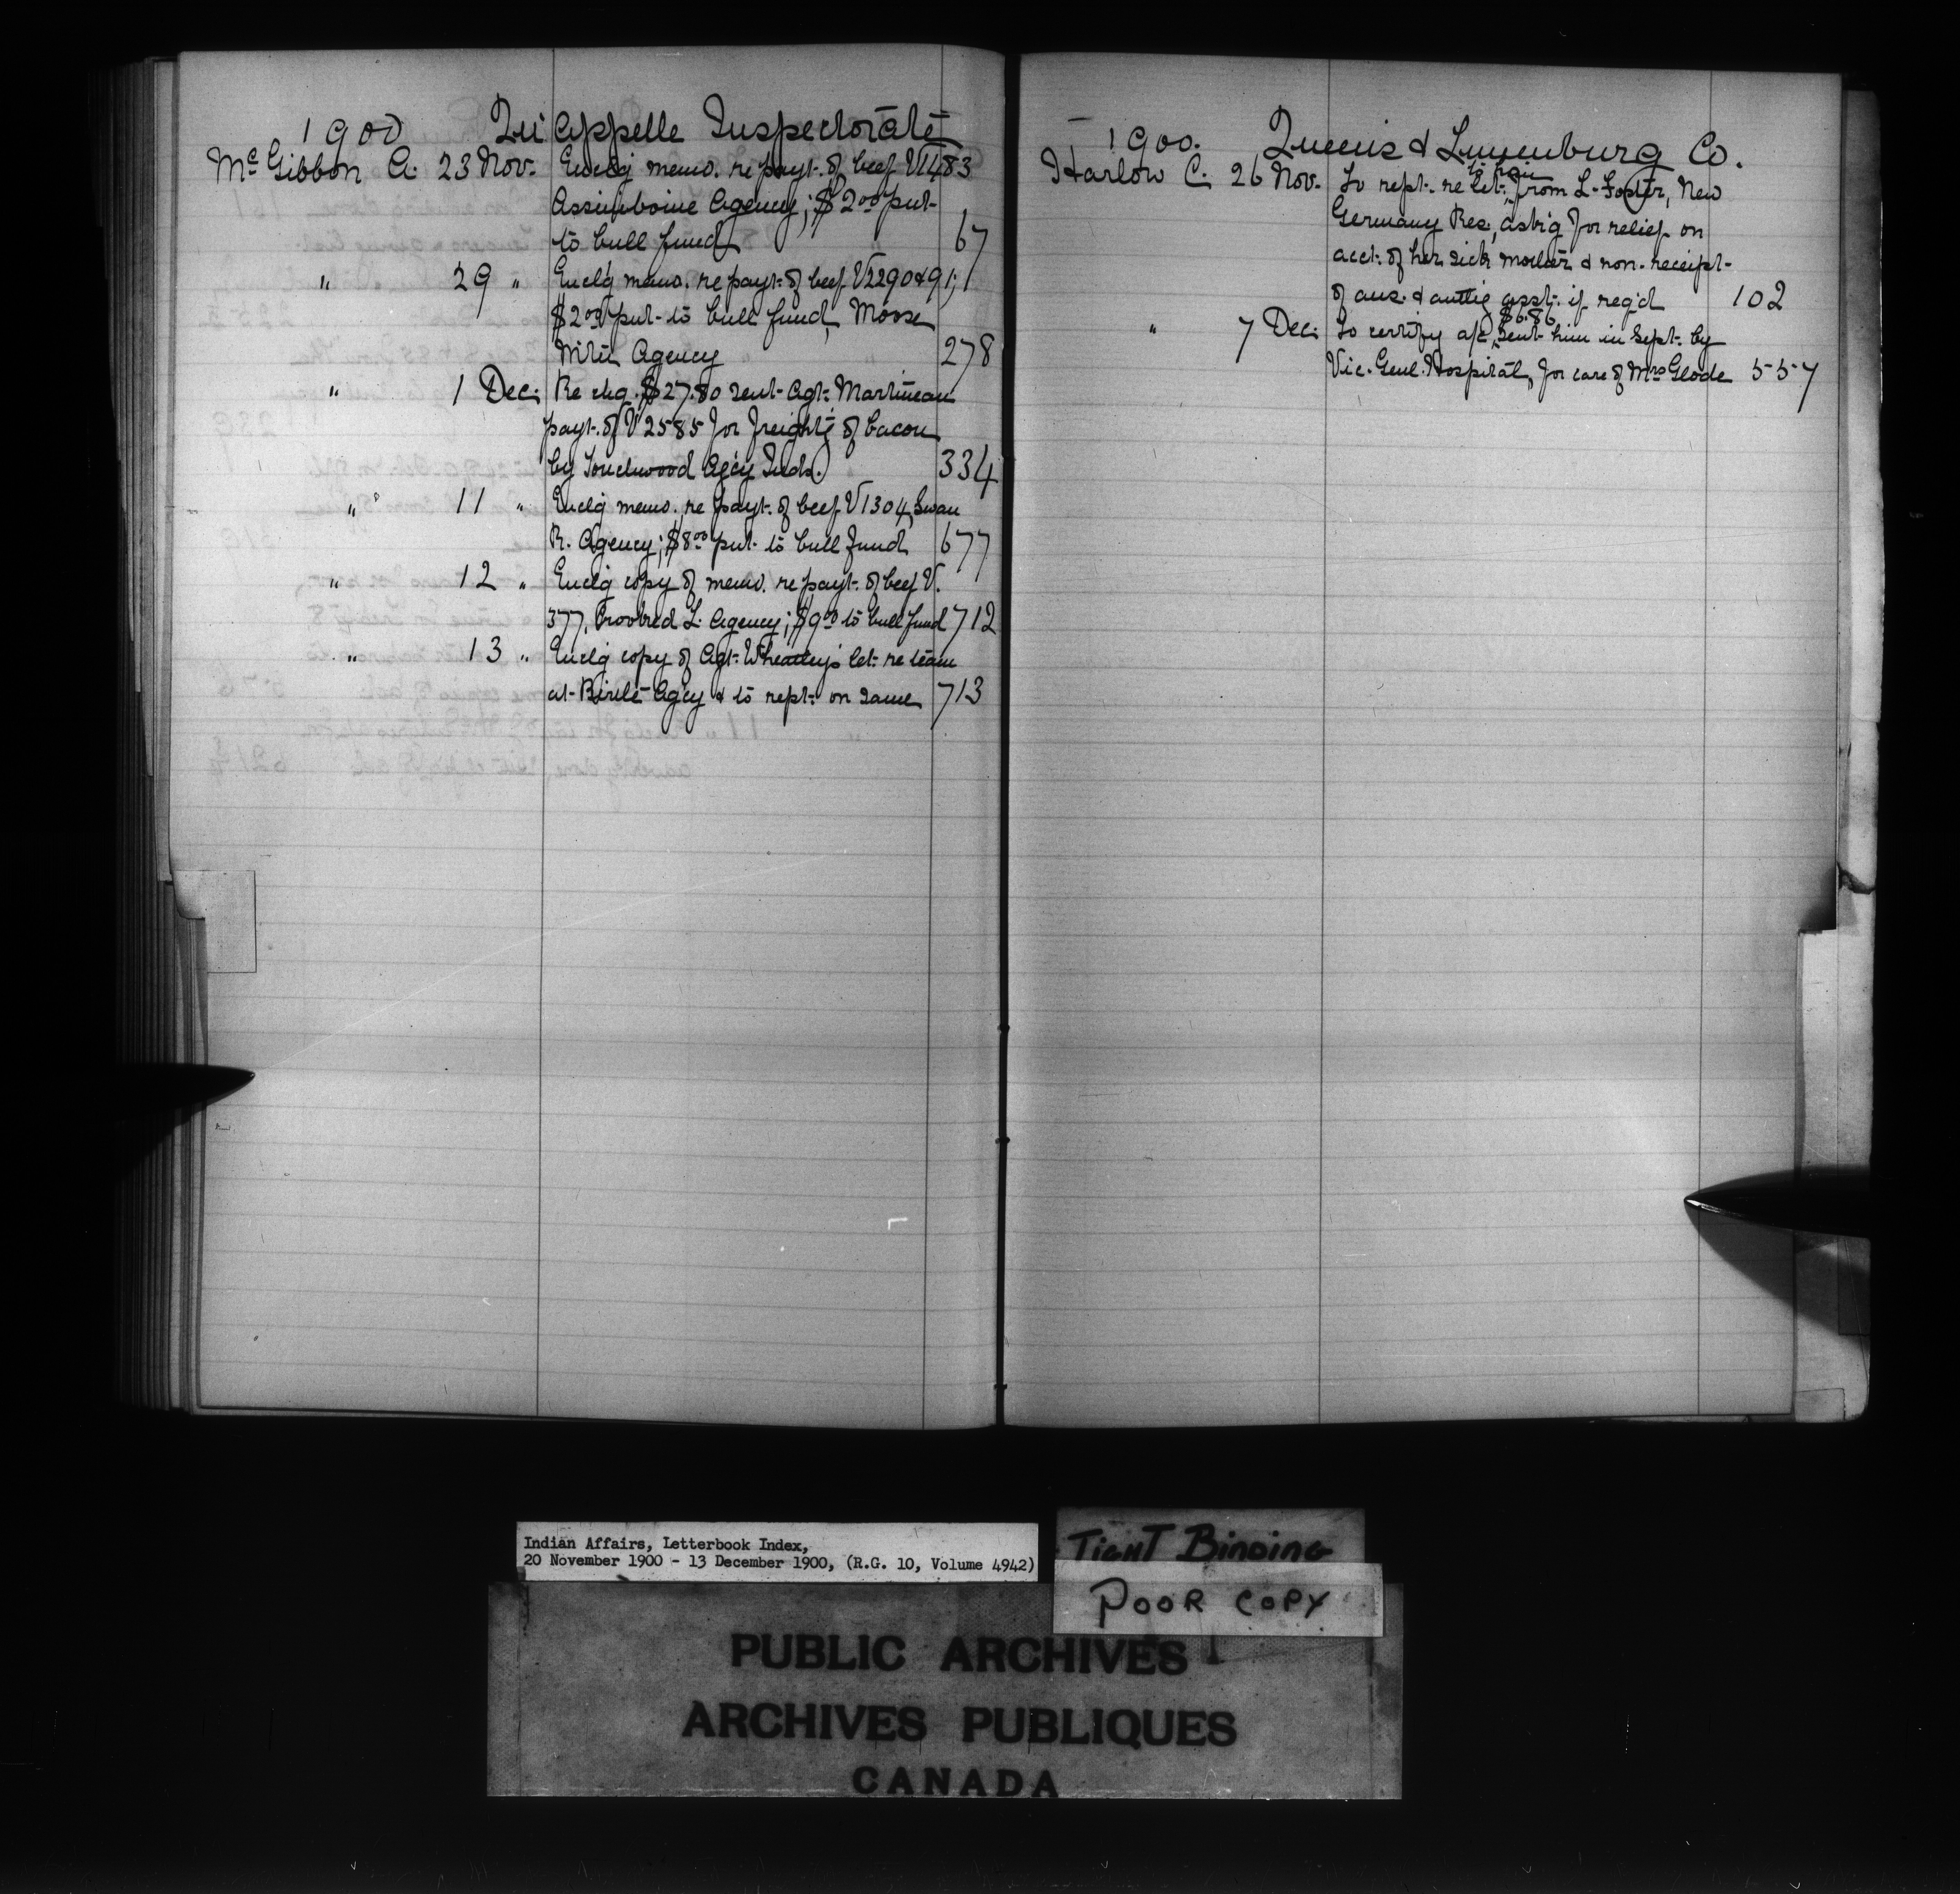 1900 Qu'Appelle Inspectorate
McGibbon A. 23 Nov. Enclg memo. re payt. of beef V1483
Assiniboine Agency; $2.00 put
to bull fund 67
" 29 " Enclg memo. re payt. of beef V2290&91;
$2.00 put to bull fund, Moose
Mtn Agency 278
" 1 Dec. Re chq. $27.80 sent Agt. Martineau
payt. of V2585 for freightg of bacon
by Touchwood Agcy Inds. 334
" 11 " Enclg memo. re payt. of beef V1304, Swan
R. Agency; $8.00 put to bull fund 677
" 12 " Enclg copy of memo. re payt. of beef V.
377, Crooked L. Agency; $9.00 to bull fund 712
" 13 " Enclg copy of Agt. Wheatley's let. re team
at Birtle Agcy & to rept. on same 713
1900. Queens & Lunenburg Co.
Harlow C. 26 Nov. To rept. re let. from L. Foster, New
Germany Res., askg for relief on
acct. of her sick mother & non-receipt
of ans. & authg asst. if reqd 102
" 7 Dec. To certify a/c, $6.86 sent him in Sept. by
Vic. Genl. Hospital, for care of Mrs Glode 557
Indian Affairs, Letterbook Index,
20 November 1900 - 13 December 1900, (R.G. 10, Volume 4942)
TIGHT BINDING
POOR COPY
PUBLIC ARCHIVES
ARCHIVES PUBLIQUES
CANADA